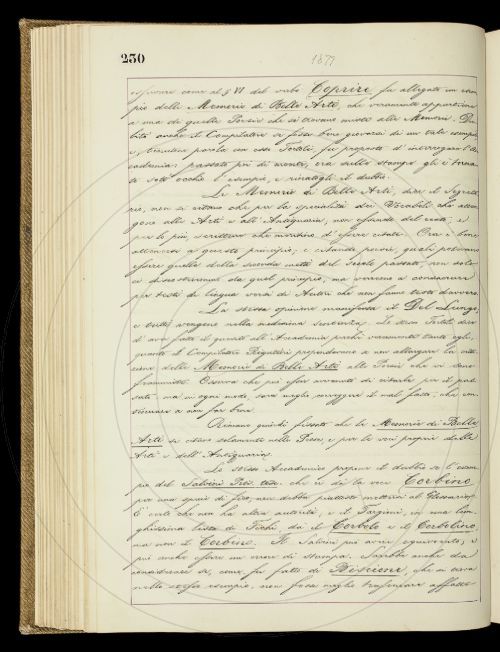 230
1877
come al § VI del verbo Coprire fu allegato un esem-
pio delle Memorie di Belle Arti, che veramente appartiene
a una di quelle Poesie che si trovano unite alle Memorie. Du-
bitò anche il Compilatore se fosse bene giovarsi di un tale esempio
e, tenutane parola con esso Tortoli, fu proposto d'interrogare l'Ac-
cademia: passato poi di mente, ora dallo stampato gli è torna-
to sott'occhio l'esempio, e rinasce gli il dubbio.
Le Memorie di Belle Arti, dice il Segreta-
rio, non si citano che per la specialità dei Vocaboli che atten-
gono alle Arti e all'Antiquaria, non essendo del resto, e
per lo più, scritture che meritino d'essere citate. Ora è bene
attenersi a questo principio, e citando poesie, quali potevano
essere quelle della seconda metà del secolo passato non solo
ci discosteremmo da quel principio, ma verremmo a consacrare
per testi di lingua versi di Autori che non fanno testo davvero.
La stessa opinione manifesta il Del Lungo;
e tutti vengono nella medesima sentenza. Lo stesso Tortoli dice
d'aver fatto il quesito all'Accademia perchè veramente tanto egli,
quanto il Compilatore Rigutini propendevano a non allargare la cita-
zione delle Memorie di Belle Arti alle Poesie che vi sono
frammiste. Osserva che può esser avvenuto di citarle per il pas-
sato, ma in ogni modo, sarà meglio correggere il mal fatto, che con-
tinuare a non far bene.
Rimane quindi fissato che le Memorie di Belle
Arti si citino solamente nelle Prose, e per le voci proprie delle
Arti e dell'Antiquaria.
Lo stesso Accademico propone il dubbio se l'esem-
pio del Salvini che ci dà la voce Corbino
per una specie di fico, non debba piuttosto mettersi al Glossario.
È certo che non ha altra autorità, e il Targioni, in una lun-
ghissima lista di Fichi, dà il Corbolo e il Corbolino,
ma non il Corbino. Il Salvini può avere equivocato; e
può anche essere un errore di stampa. Sarebbe anche da
considerare se, come fu fatto di Biscione, che si cava
nello stesso esempio, non fosse meglio tralasciare affatto